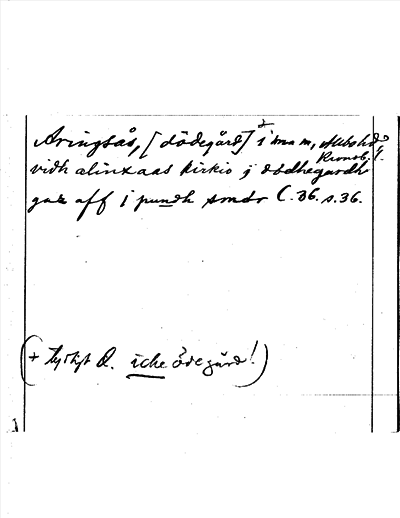 Aringsås, [dödegård] i sma m, Albo hd
Kronob. l.
vidh alinxaas kirkio j dødhegardh
gaz aff j pundh smdr C. 36. s. 36.
(+ tydligt Q. icke ödegård!)